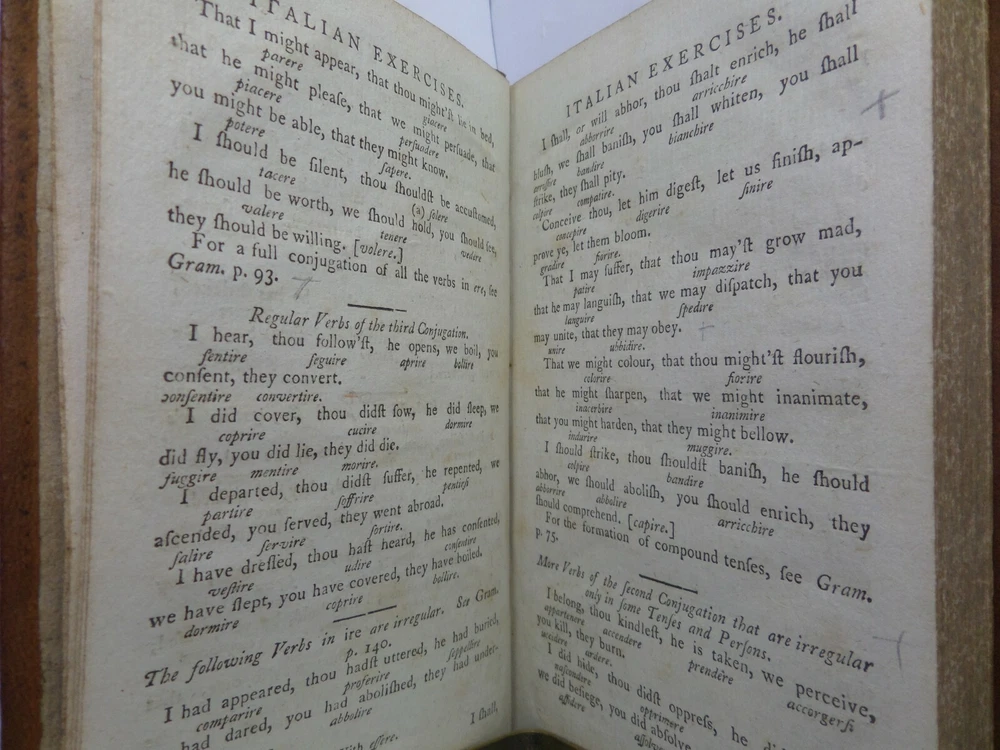 ITALIAN EXERCISES.
That I might appear, that thou might'ſt lie in bed,
parere giacere
that he might pleaſe, that we might perſuade, that
piacere perſuadere
you might be able, that they might know.
potere ſapere.
I ſhould be ſilent, thou ſhouldſt be accuſtomed,
tacere (a) ſolere
he ſhould be worth, we ſhould hold, you ſhould ſee,
valere tenere vedere
they ſhould be willing. [volere.]
For a full conjugation of all the verbs in ere, ſee
Gram. p. 93.
Regular Verbs of the third Conjugation.
I hear, thou follow'ſt, he opens, we boil, you
ſentire ſeguire aprire bollire
conſent, they convert.
conſentire convertire.
I did cover, thou didſt ſow, he did ſleep, we
coprire cucire dormire
did fly, you did lie, they did die.
fuggire mentire morire.
I departed, thou didſt ſuffer, he repented, we
partire ſoffrire pentirſi
aſcended, you ſerved, they went abroad.
ſalire ſervire ſortire.
I have dreſſed, thou haſt heard, he has conſented,
veſtire udire conſentire
we have ſlept, you have covered, they have boiled.
dormire coprire bollire.
The following Verbs in ire are irregular. See Gram.
p. 140.
I had appeared, thou hadſt uttered, he had buried,
comparire proferire ſeppellire
had dared, you had aboliſhed, they had under-
abbolire
With eſſere.
I ſhall,
ITALIAN EXERCISES.
I ſhall, or will abhor, thou ſhalt enrich, he ſhall
abborrire arricchire
bluſh, we ſhall baniſh, you ſhall whiten, you ſhall
arroſſire bandire bianchire
ſtrike, they ſhall pity.
colpire compatire.
Conceive thou, let him digeſt, let us finiſh, ap-
concepire digerire finire
prove ye, let them bloom.
gradire fiorire.
That I may ſuffer, that thou may'ſt grow mad,
patire impazzire
that he may languiſh, that we may diſpatch, that you
languire ſpedire
may unite, that they may obey.
unire ubbidire.
That we might colour, that thou might'ſt flouriſh,
colorire fiorire
that he might ſharpen, that we might inanimate,
inacerbire inanimire
that you might harden, that they might bellow.
indurire muggire.
I ſhould ſtrike, thou ſhouldſt baniſh, he ſhould
colpire bandire
abhor, we ſhould aboliſh, you ſhould enrich, they
abborrire abbolire arricchire
ſhould comprehend. [capire.]
For the formation of compound tenſes, ſee Gram.
p. 75.
More Verbs of the ſecond Conjugation that are irregular
only in ſome Tenſes and Perſons.
I belong, thou kindleſt, he is taken, we perceive,
appartenere accendere prendère accorgerſi
you kill, they burn.
uccidere ardere.
I did hide, thou didſt oppreſs, he
naſcondere opprimere
we did beſiege, you did abſolve
aſſidere